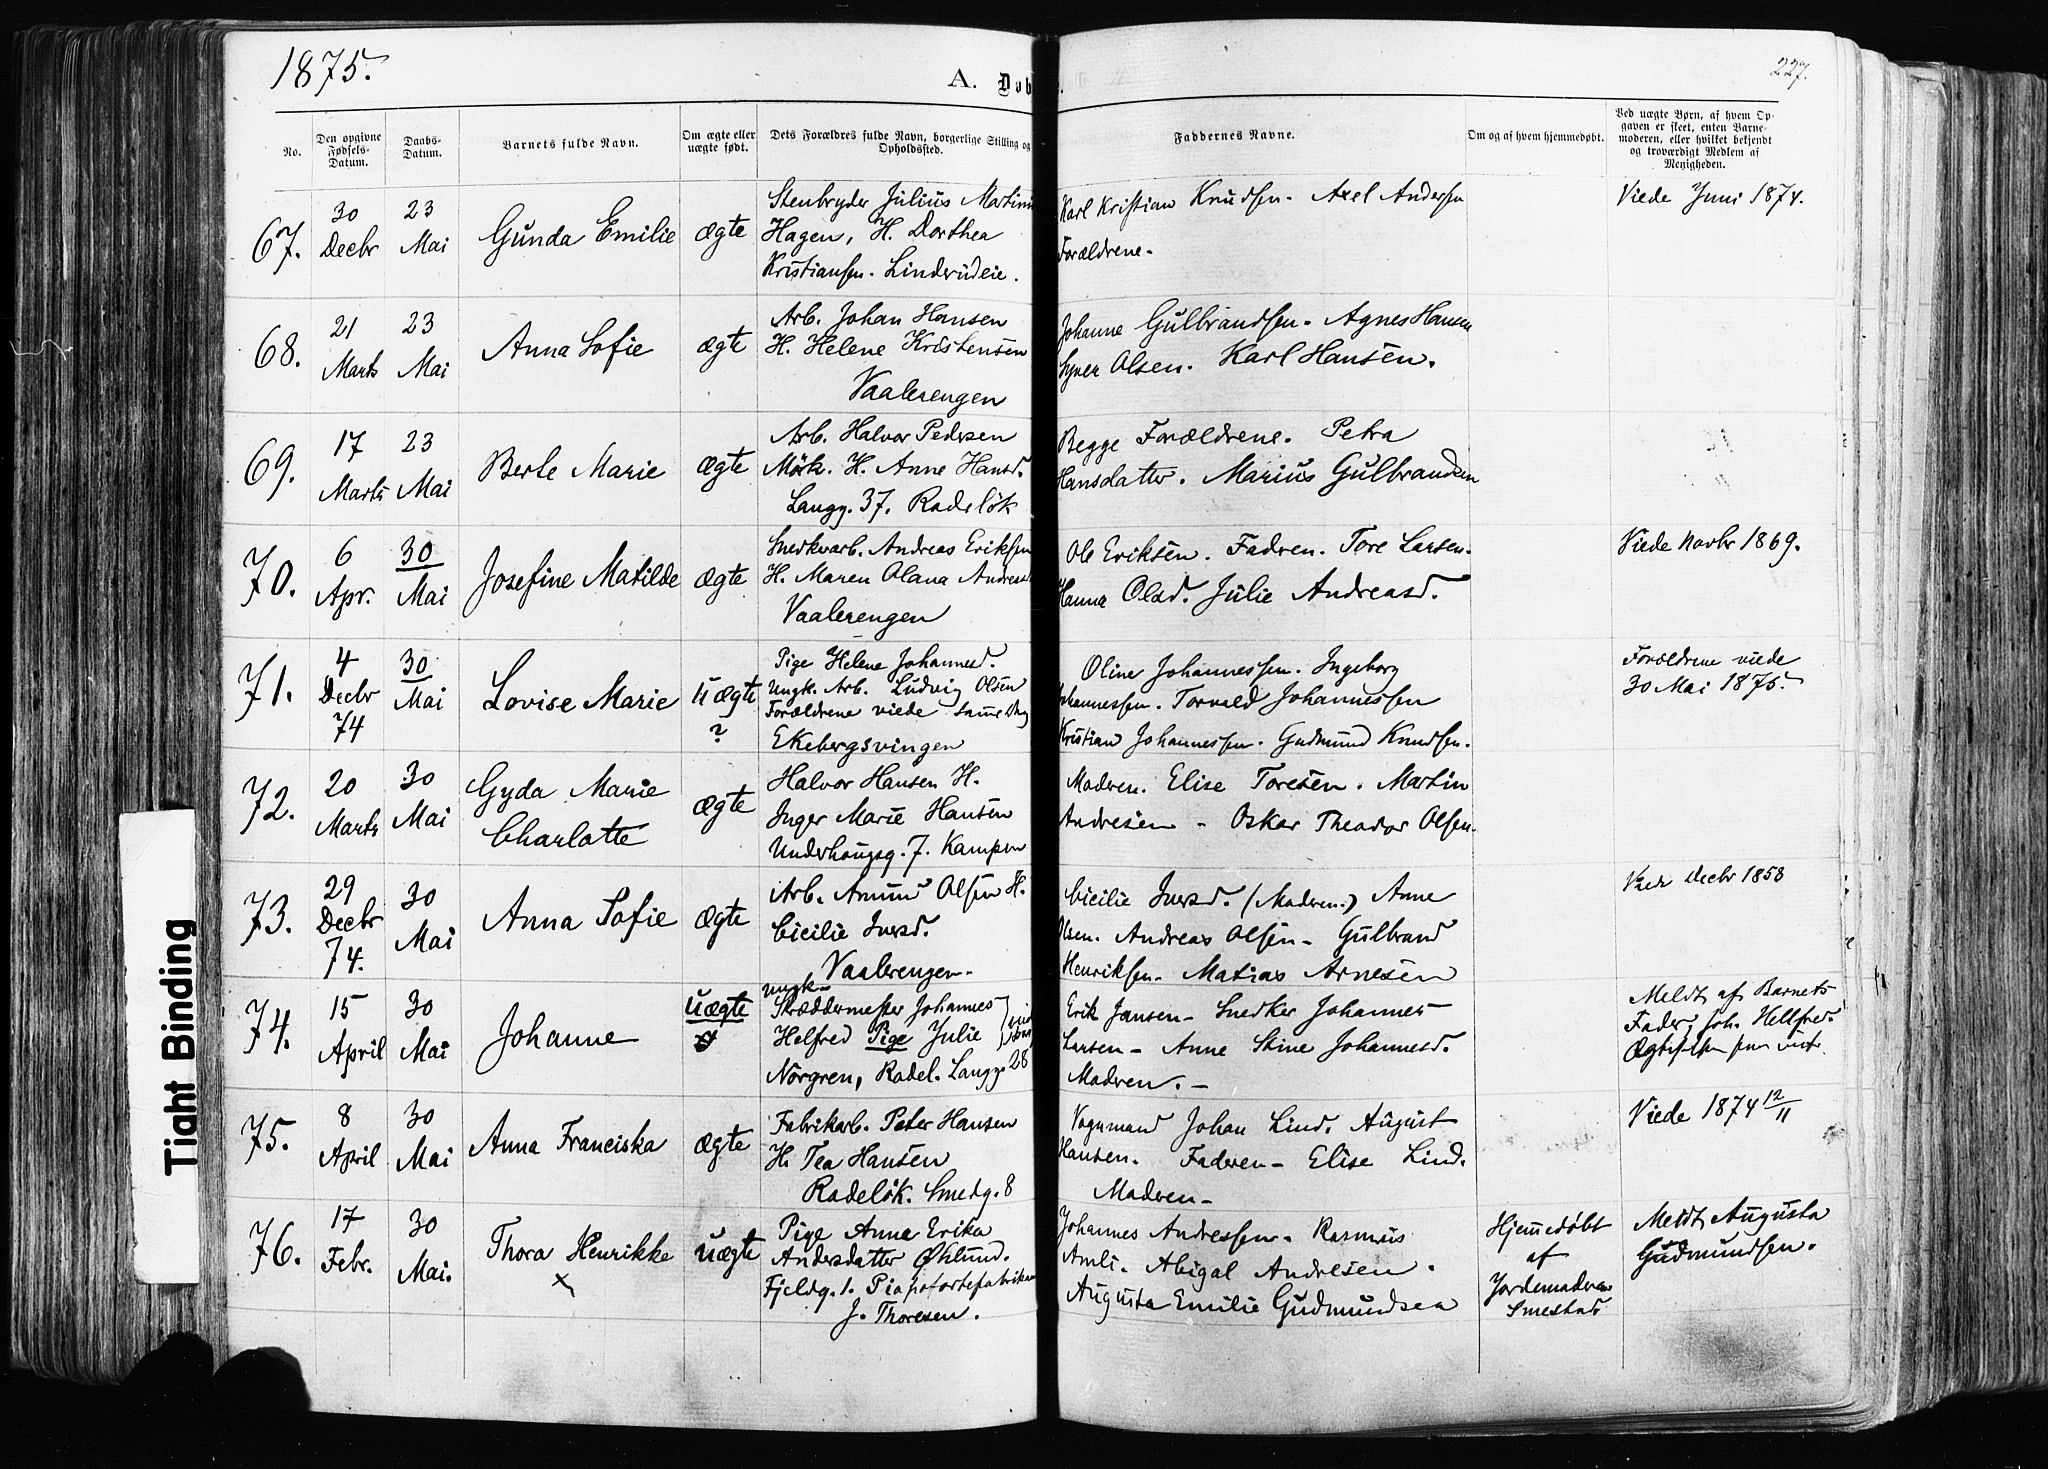 1875.
A. Døb
227.
No.
Den opgivne Fødsels-Datum.
Daabs-Datum.
Barnets fulde Navn.
Om ægte eller uægte født.
Dets Forældres fulde Navn, borgerlige Stilling og Opholdssted.
Faddernes Navne.
Om og af hvem hjemmedøbt.
Ved uægte Børn, af hvem Op-
gaven er skeet, enten Barne-
moderen, eller hvilket bekjendt
og troværdigt Medlem af
Menigheden.
67.
30 Decbr
23 Mai
Gunda Emilie
ægte
Stenbryder Julius Martinus
Hagen, H. Dorthea
Kristiansen. Linderudeie.
Karl Kristian Knudsen. Axel Andersen
Forældrene.
Viede Juni 1874.
68.
21 Marts
23 Mai
Anna Sofie
ægte
Arb. Johan Hansen
H. Helene Kristensen
Vaalerengen
Johanne Gulbrandsen. Agnes Hansen
Syver Olsen. Karl Hansen.
69.
17 Marts
23 Mai
Berte Marie
ægte
Arb. Halvor Pedersen
Mörk. H. Anne Hansd.
Langg. 37. Rodeløk
Begge Forældrene. Petra
Hansdatter. Marius Gulbrandsen
70.
6 Apr.
30 Mai
Josefine Matilde
ægte
Snedkerarb. Andreas Eriksen
H. Maren Olava Andreasd
Vaalerengen
Ole Eriksen. Fadren. Tore Larsen.
Hanna Olsd. Julie Andreasd.
Viede Novbr 1869.
71.
4 Decbr 74
30 Mai
Lovise Marie
uægte
?
Pige Helene Johannesd.
Ungk. Arb. Ludvig Olsen
Forældrene viede samme Dag
Ekebergsvingen
Oline Johannessen. Ingeborg
Johannessen. Torvald Johannessen
Kristian Johannessen. Gudmund Knudsen.
Forældrene viede
30 Mai 1875.
72.
20 Marts
30 Mai
Gyda Marie
Charlotte
ægte
Halvor Hansen H.
Inger Marie Hansen
Underhaugsg. 7. Kampen
Modren. Elise Toresen. Martin
Andresen - Oskar Theodor Olsen.
73.
29 Decbr 74.
30 Mai
Anna Sofie
ægte
Arb. Amund Olsen H.
Cicilie Iversd.
Vaalerengen.
Cicilie Iversd. (Modren.) Anne
Olsen. Andreas Olsen - Gulbrand
Henriksen. Matias Arnesen
Viede Decbr 1858
74.
15 April
30 Mai
Johanne
uægte
Ungk.
Skræddermester Johannes
Helfred Pige Julie
Norgren, Rodel. Langg. 28
Erik Jansen - Snedker Johannes
Larsen - Anne Stine Johannesd.
Modren. -
Meldt af Barnets
Fader, Joh. Hellfred.
75.
8 April
30 Mai
Anna Franciska
ægte
Fabrikarb. Peter Hansen
H. Tea Hansen
Rodeløk. Smedg. 8
Vognmand Johan Lind. August
Hansen. Faderen - Elise Lind.
Modren -
Viede 1874 12/11
76.
17 Febr.
30 Mai.
Thora Henrikke
x
uægte
Pige Anne Erika
Andersdatter Øhlund.
Fjeldg. 1. Piapofortefabrikan
J. Thoresen.
Johannes Andressen. Rasmus
Amli. Abigal Andresen.
Augusta Emilie Gudmundsen
Hjemmedøbt
af
Jordemodren
Smestad
Meldt Augusta
Gudmundsen.
Tight Binding